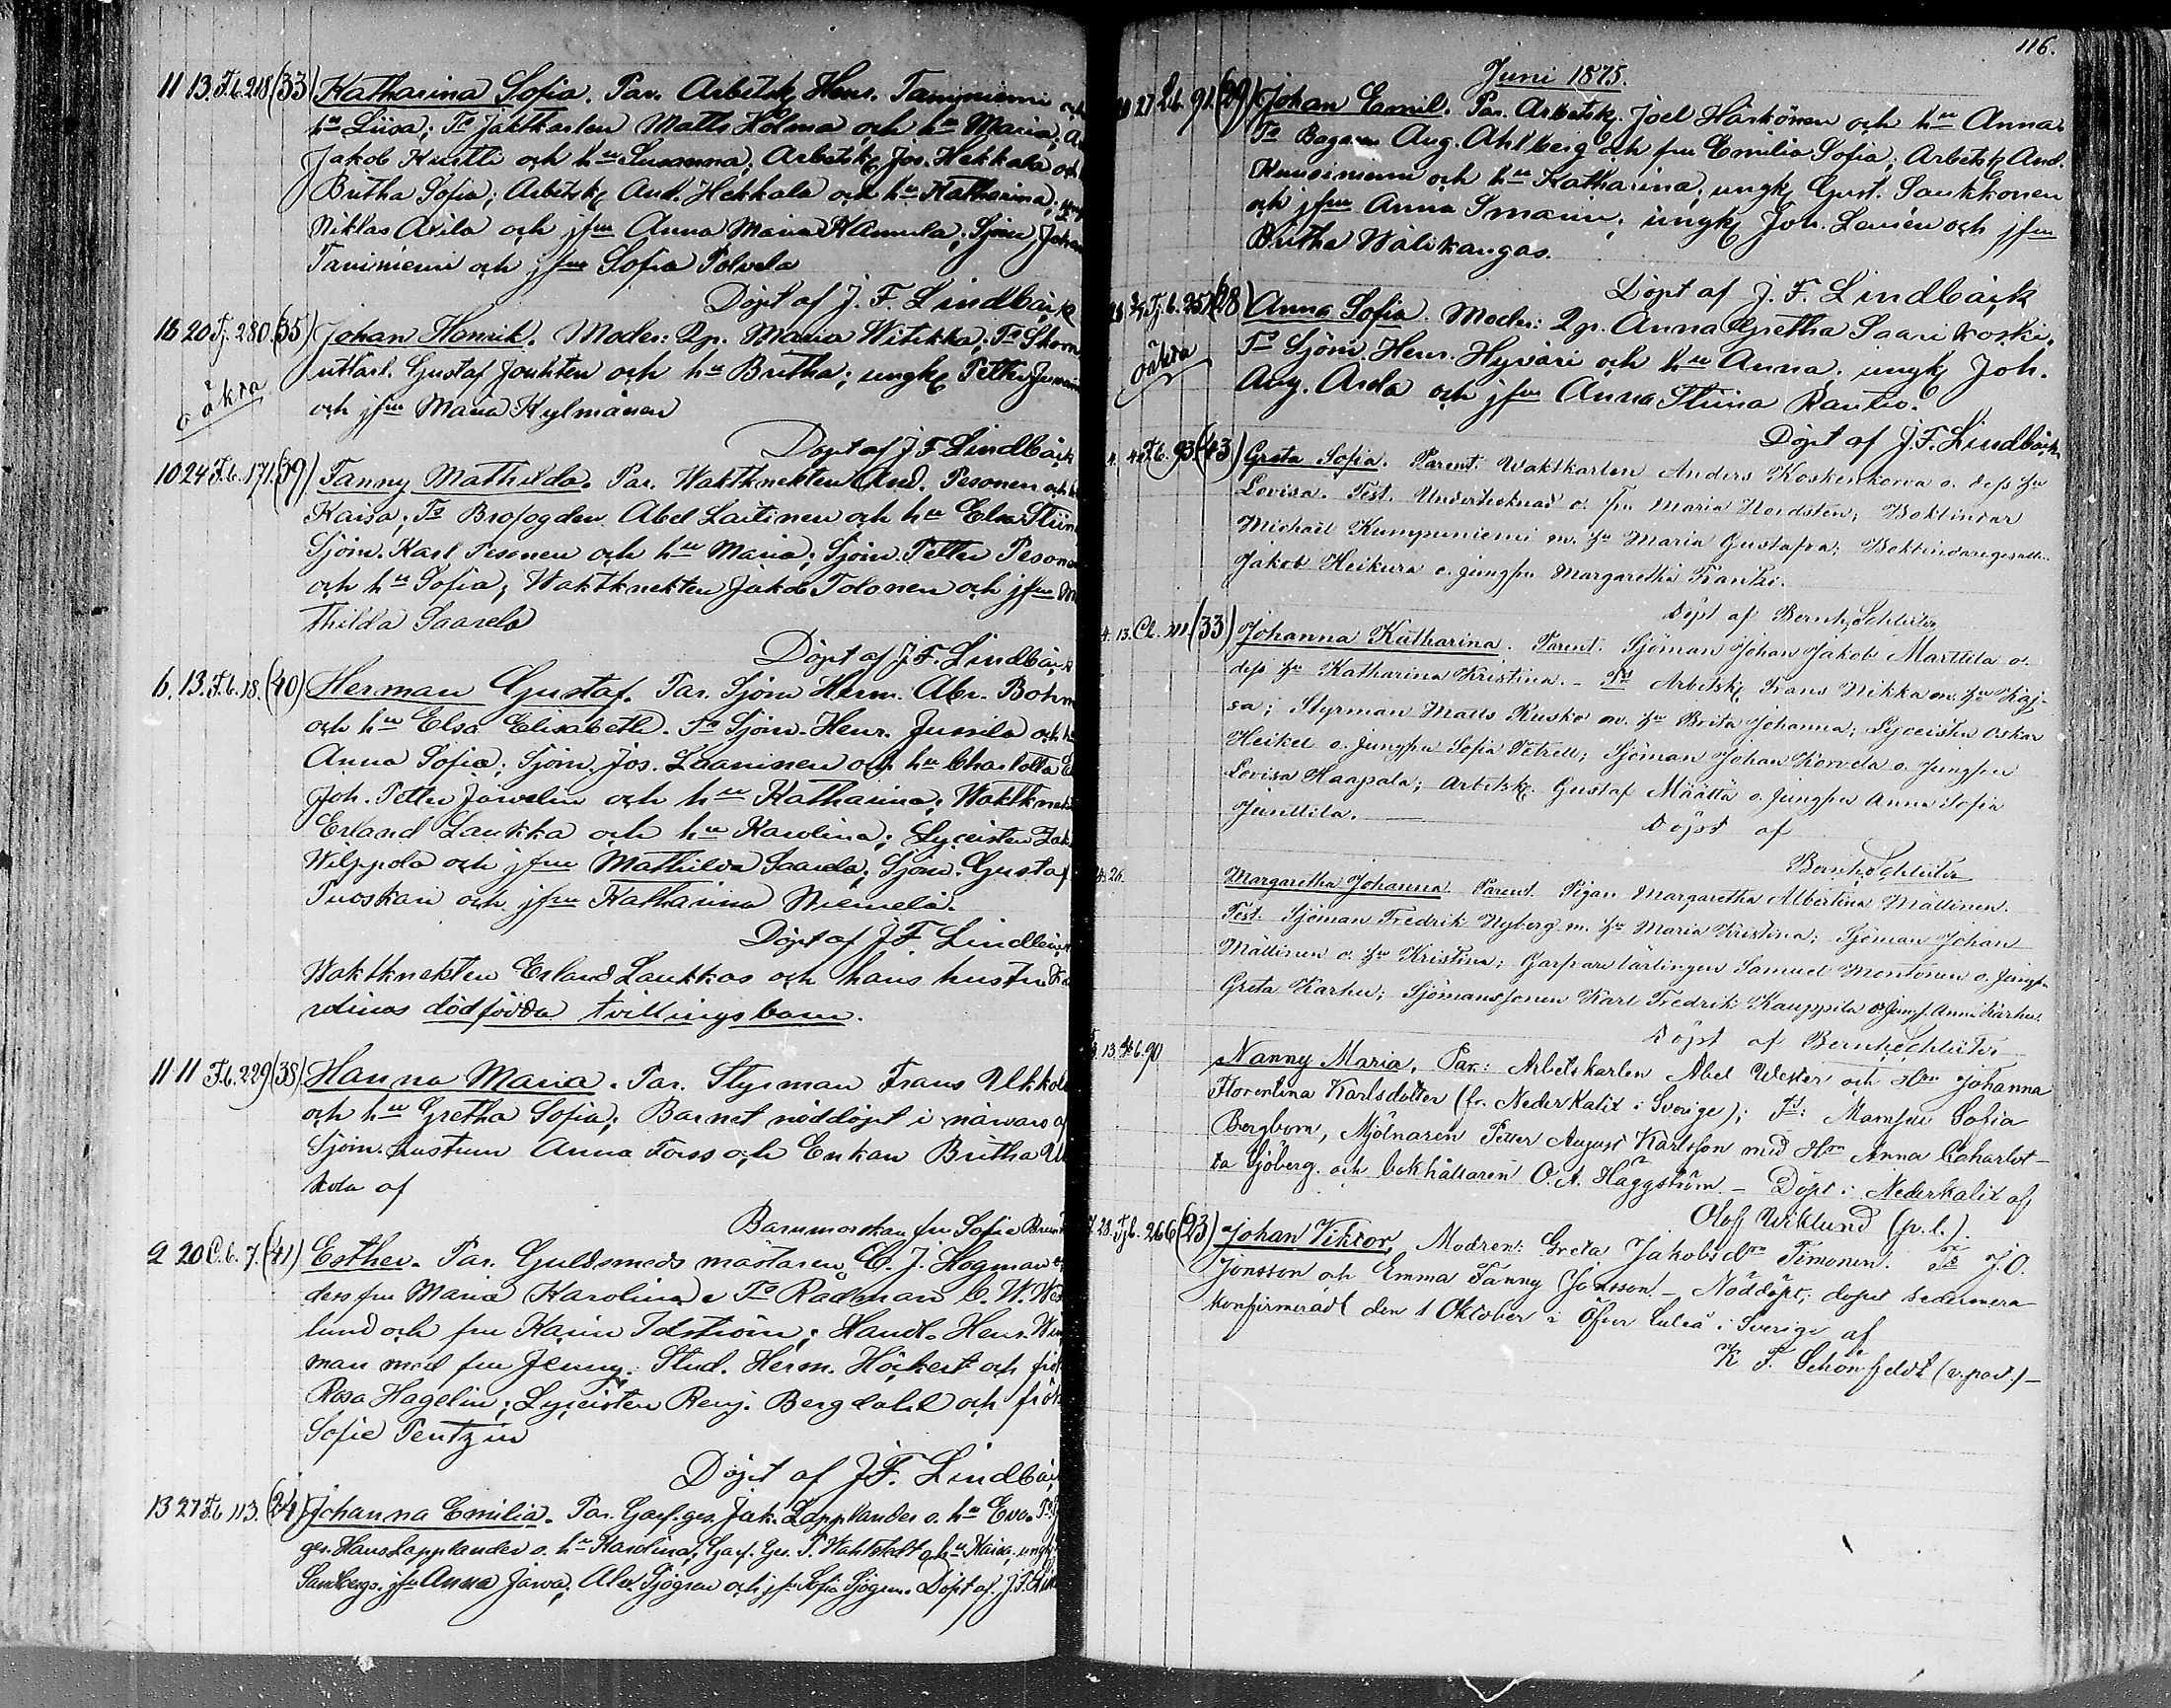 11 13. F.b. 218 (33) Katharina Sofia. Par. Arbetsk. Henr. Tamminiemi och
hu Liisa; Ts Jaktkarlen Matts Holma och hu Maria; A
Jakob Kurtti och hu Susanna; Arbetsk. Jos. Hekkala och
Britha Sofia; Arbetsk. And. Hekkala och hu Katharina;
Niklas Avila och jfru Anna Maria Hamula; Sjöm. Johan
Taminiemi och jfru Sofia Polvela
Döpt af J. F. Lindbäck
18 20 Tj. 280. (35) Johan Henrik. Moder: Qp. Maria Witikka; Ts Skorn
Gustaf Jouhten och hu Britha; ungk. Petter
och jfru Maria Kylmänen
oäkta
Döpt af J F Lindbäck
10 24 F.b. 171. (39) Fanny Mathilda. Par. Waktknekten And. Pesonen och h
Kaisa; Ts Brofogden Abel Laitinen och hu Elsa Stiin
Sjöm. Karl Pesonen och hu Maria; Sjöm. Petter Pesonen
och hu Sofia; Waktknekten Jakob Tolonen och jfru Ma
thilda Saarela
Döpt af J. F. Lindbäck
6. 13. F.b. 18. (40) Herman Gustaf. Par. Sjöm Herm. Abr. Bohm
och hu Elsa Elisabeth. Ts Sjöm. Henr. Junnila och hu
Anna Sofia; Sjöm. Jos. Laaninen och hu Charlotta E
Joh. Petter Jawelin och hu Katharina; Waktknekt
Erland Laukka och hu Karolina; Lyceisten Zak
Wilppola och jfru Mathilda Saarela; Sjöm. Gustaf
Tuoskan och jfru Katharina Niemelä.
Döpt af J. F. Lindbäck
Waktknekten Erland Laukkas och hans hustru Ka
rolinas dödfödda tvillingsbarn.
11 11 F.b. 229 (38) Hanna Maria. Par. Styrman Frans Ukkola
och hu Gretha Sofia; Barnet nöddöpt i närvaro af
Sjöm. hustrun Anna Forss och Enkan Britha U
kola af
Barnmorskan fru Sofie Brun
2 20 C.b. 7. (41) Esther. Par. Guldsmeds mästaren C. J. Hogman o
dess fru Maria Karolina. Ts Rådman C. W. Wes
lund och fru Karin Idström; Handl. Henr. Win
man med fru Jenny; Stud. Herm. Höckert och frök
Rosa Hagelin; Lyceisten Benj. Bergdahl och frök
Sofie Pentzin
Döpt af J. F. Lindbäck
13 27 F.b 113. (24) Johanna Emilia. Par. Garf. ges. Jak. Lapplander o. hu Eva. Ts G
ges. Hans Lapplander o. hu Karolina; Garf. Ges. P. Wahlstedt o. hu Kaisa; ungk
Sandberg o. jfru Anna Jawa; Alex. Sjögren och jfru Sofia Sjögren. Döpt af J. F. Lin
116.
Juni 1875.
20 27 Lb. 91. (29) Johan Emil. Par. Arbetsk. Joel Härkönen och hu Anna.
Ts Bagaren Aug. Ahlberg och fru Emilia Sofia; Arbetsk. And.
Kuusiniemi och hu Katharina; ungk. Gust. Saukkonen
och jfru Anna Smarin; ungk. Joh. Lenien och jfru
Britha Wälikangas.
Döpt af J. F. Lindbäck
28 3/7 Tj.b. 251 (28) Anna Sofia. Moder: Qp. Anna Gretha Saarikoski.
oäkta
Ts Sjöm. Henr. Hyväri och hu Anna. ungk. Joh.
Aug. Arela och jfru Anna Stiina Rautio.
Döpt af J. F. Lindbäck
4. 4 F.b. 93. (43) Greta Sofia. Parent. Waktkarlen Anders Koskenkorva o. dess hu
Lovisa. Test. Undertecknad o. fru Maria Nordsten; Bokbindar
Michaël Kumpuniemi m. hu Maria Gustafva; Bokbindaregesäll
Jakob Heikura o. jungfru Margaretha Frantsi.
Döpt af Bernh. Schlüter
4. 13. Cl. 211 (33) Johanna Katharina. Parent. Sjöman Johan Jakob Marttila o.
dess hu Katharina Kristina. – Ts Arbetsk. Frans Nikka m. hu Kaj-
sa; Styrman Matts Rusko m. hu Brita Johanna; Lyceisten Oskar
Heikel o. Jungfru Sofia Petrell; Sjöman Johan Korvela o. Jungfru
Lovisa Haapala; Arbetsk. Gustaf Määttä o. Jungfru Anna Sofia
Junttila.
Döpt af
Bernh. Schlüter
26. Margaretha Johanna. Parent. Pigan Margaretha Albertina Mällinen.
Test. Sjöman Fredrik Nyberg m. hu Maria Kristina; Sjöman Johan
Mällinen o. hu Kristina; Garfvare lärlingen Samuel Montonen o. Jungfr.
Greta Karhu; Sjömanssonen Karl Fredrik Kauppila o. Jungf. Anna Karhu.
Döpt af Bernh. Schlüter
13. F.b. 90 Nanny Maria, Par.: Arbetskarlen Abel Wester och Hu Johanna
Florentina Karlsdotter (fr. Neder Kalix i Sverige); Ts: Mamsell Sofia
Bergbom, Mjölnaren Petter August Karlsson med Hu Anna Charlot-
ta Sjöberg. och bokhållaren O. A. Häggström – Döpt i Nederkalix af
Olof Wiklund (p. l.).
7. 28. Tj.b. 266 (23) Johan Viktor, Modren: Greta Jakobsdr Timonen. Ts J. O.
Jonsson och Emma Fanny Jonsson – Nöddöpt; dopet sedermera
konfirmeradt den 1 Oktober i Öfver Luleå i Sverige af
K. F. Schönfeldt (v. past.) –